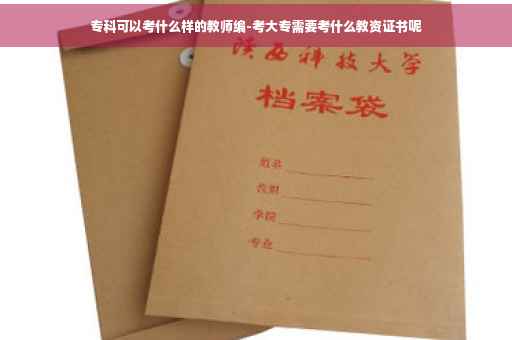 专科可以考什么样的教师编-考大专需要考什么教资证书呢
陕西科技大学
档案袋
姓名
学院
专业